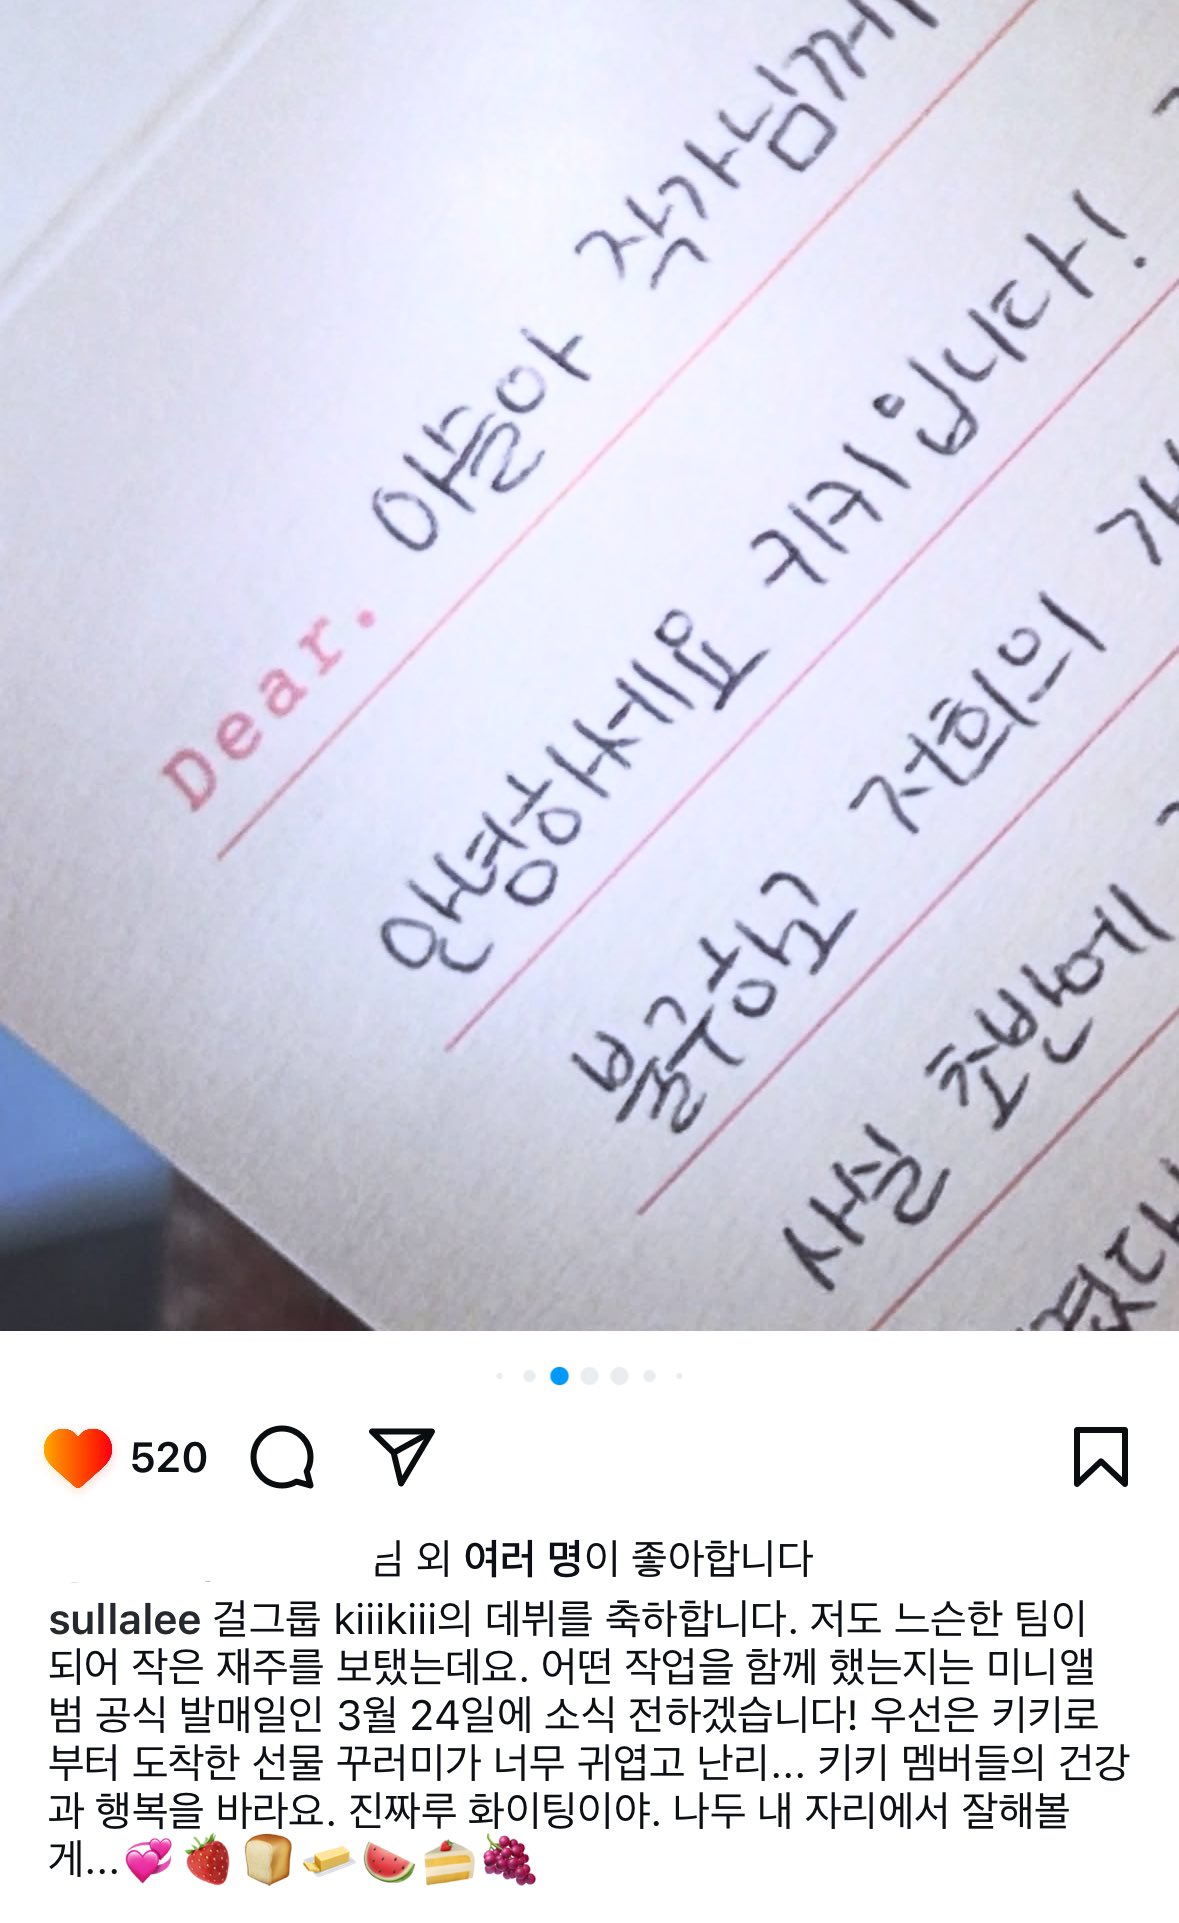 Dear. 이슬아 작가님께
안녕하세요 키키입니다!
불구하고 저희의
사실 초반에
520
님 외 여러 명이 좋아합니다
sullalee 걸그룹 kiiikiii의 데뷔를 축하합니다. 저도 느슨한 팀이
되어 작은 재주를 보탰는데요. 어떤 작업을 함께 했는지는 미니앨
범 공식 발매일인 3월 24일에 소식 전하겠습니다! 우선은 키키로
부터 도착한 선물 꾸러미가 너무 귀엽고 난리... 키키 멤버들의 건강
과 행복을 바라요. 진짜루 화이팅이야. 나두 내 자리에서 잘해볼
게...💞🍓🍞🧈🍉🍰🍇